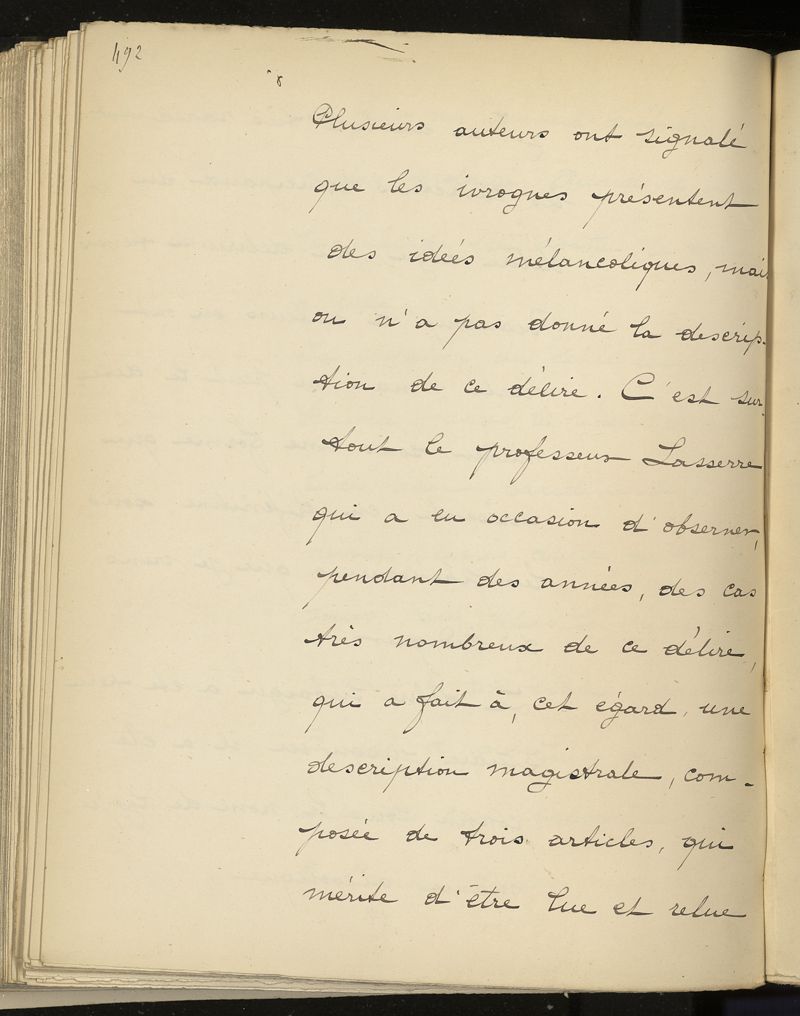 492
Plusieurs auteurs ont signalé
que les ivrognes présentent
des idées mélancoliques, mais
on n'a pas donné la descrip-
tion de ce délire. C'est sur-
tout le professeur Lasserre
qui a eu occasion d'observer,
pendant des années, des cas
très nombreux de ce délire,
qui a fait à, cet égard, une
description magistrale, com-
posée de trois articles, qui
mérite d'être lue et relue